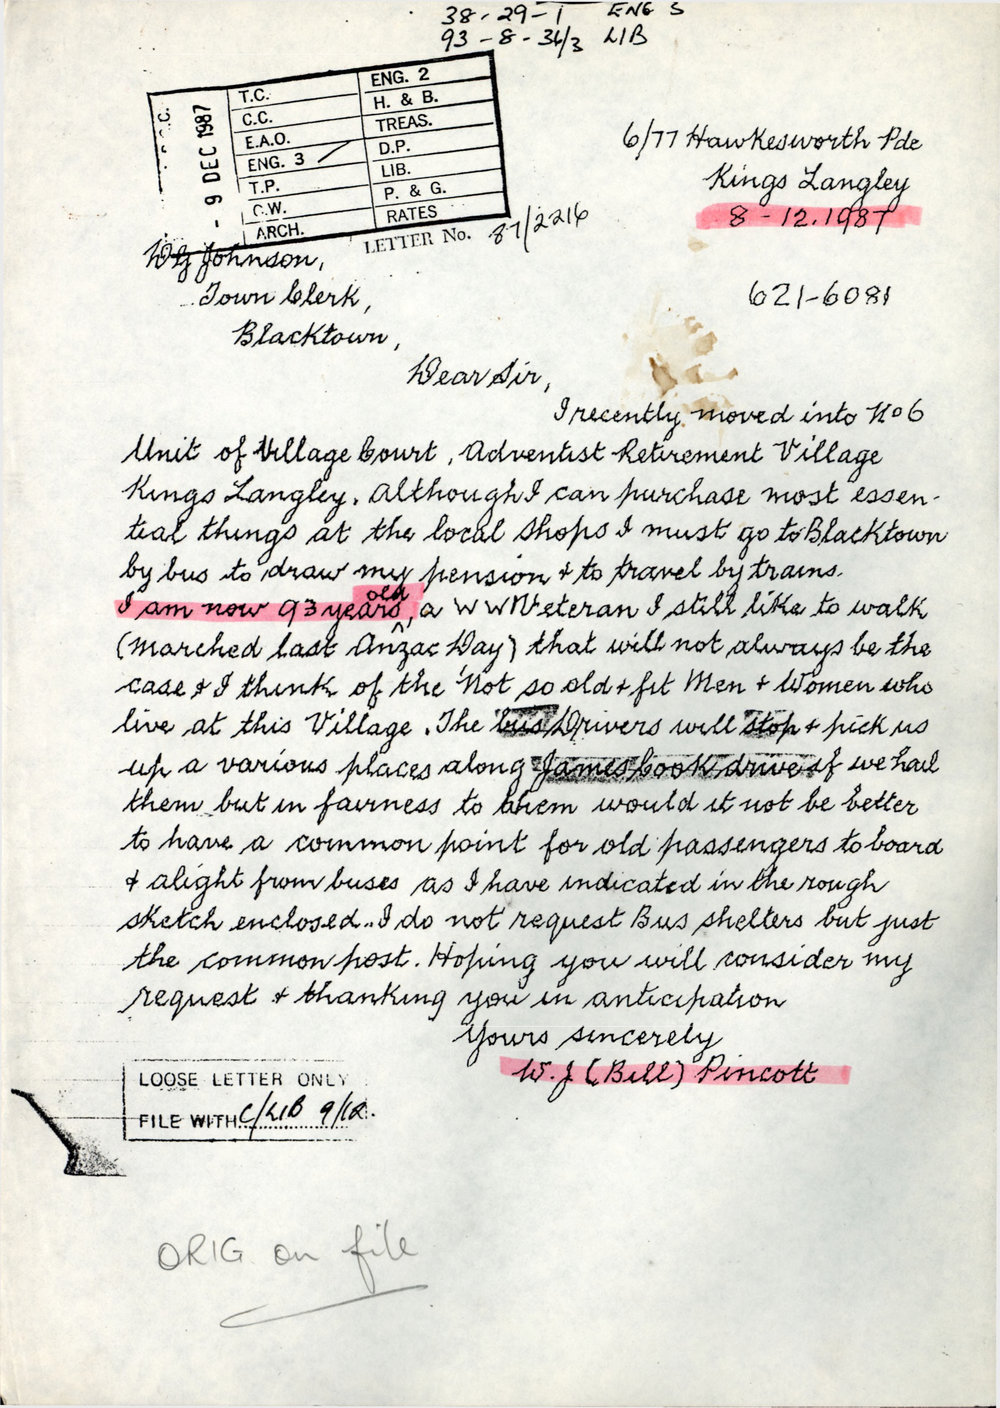 38-29-1 ENG S
93-8-36/3 LIB
- 9 DEC 1987
T.C. ENG. 2
C.C. H. & B.
E.A.O. TREAS.
ENG. 3 D.P.
T.P. LIB.
C.W. P. & G.
ARCH. RATES
LETTER No. 87/2216
6/77 Hawkesworth Pde
Kings Langley
8-12.1987
Johnson,
Town Clerk,
Blacktown,
621-6081
Dear Sir,
I recently moved into No 6
Unit of Village Court, Adventist Retirement Village
Kings Langley. Although I can purchase most essen-
tial things at the local shops I must go to Blacktown
by bus to draw my pension & to travel by trains.
I am now 93 years old, a WW1 Veteran I still like to walk
(marched last Anzac Day) that will not always be the
case & I think of the Not so old & fit Men & Women who
live at this Village. The bus Drivers will stop & pick us
up a various places along James Cook drive if we hail
them but in fairness to them would it not be better
to have a common point for old passengers to board
& alight from buses as I have indicated in the rough
sketch enclosed.. I do not request Bus shelters but just
the common post. Hoping you will consider my
request & thanking you in anticipation
Yours sincerely
W.J (Bill) Pincott
LOOSE LETTER ONLY
FILE WITH C/LIB 9/12.
ORIG on file